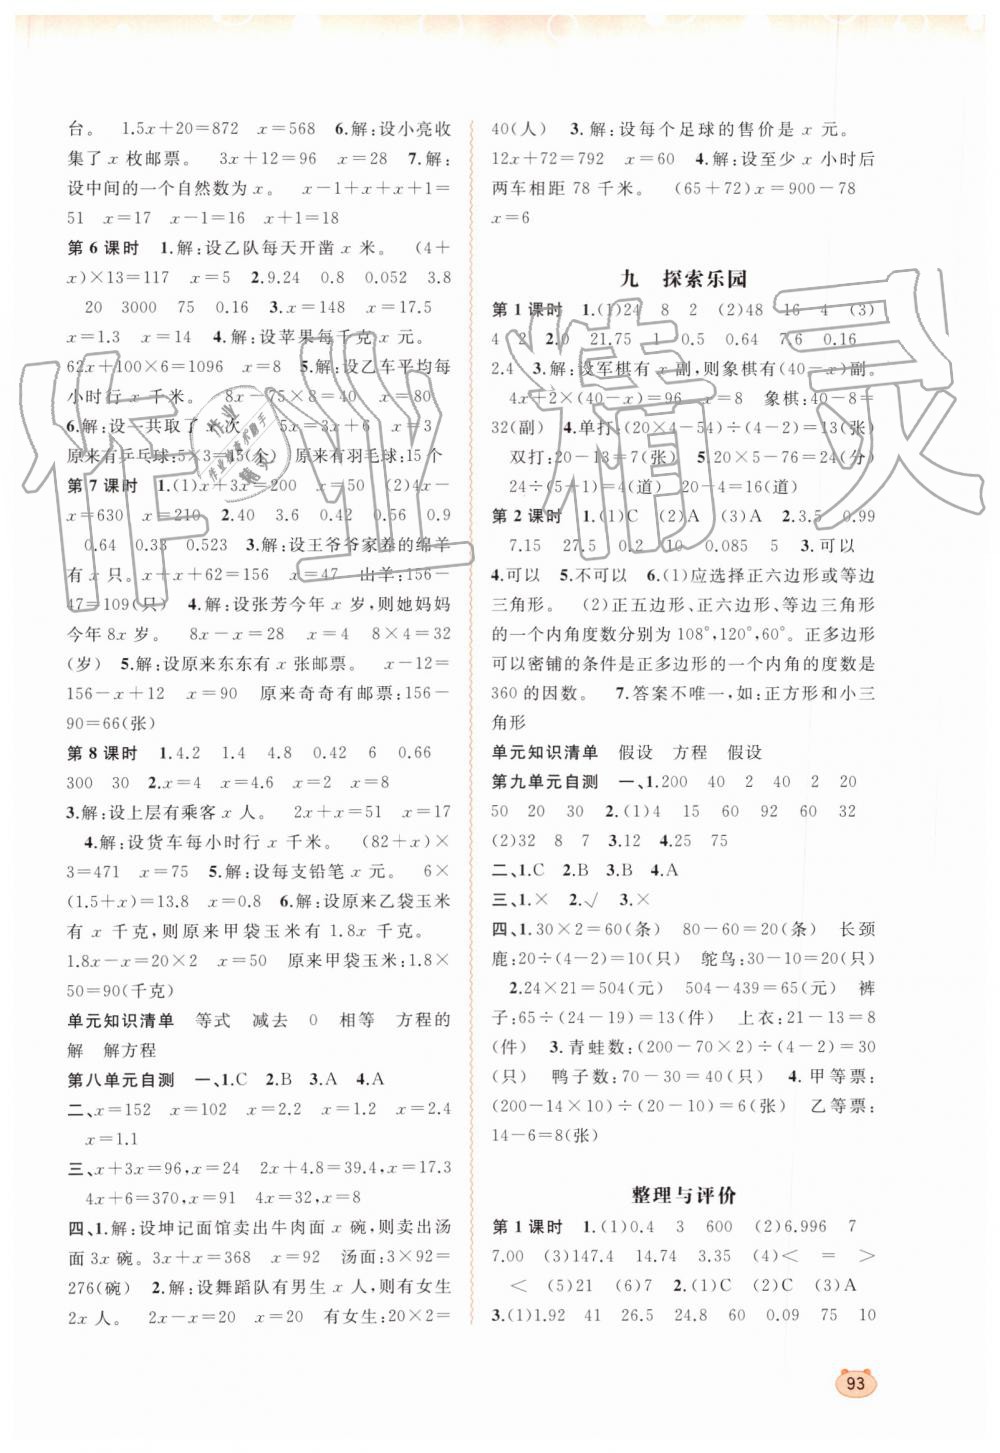 台。 1.5x+20=872 x=568 6.解:设小亮收
集了 x 枚邮票。 3x+12=96 x=28 7.解:
设中间的一个自然数为 x。 x-1+x+x+1=
51 x=17 x-1=16 x+1=18
第 6 课时 1.解:设乙队每天开凿 x 米。 (4+
x)×13=117 x=5 2.9.24 0.8 0.052 3.8
20 3000 75 0.16 3.x=148 x=17.5
x=1.3 x=14 4.解:设苹果每千克 x 元。
62x+100×6=1096 x=8 5.解:设乙车平均每
小时行 x 千米。 8x-75×8=40 x=80
6.解:设一共取了 x 次。 5x=3x+6 x=3
原来有乒乓球:5×3=15(个) 原来有羽毛球:15 个
第 7 课时 1.(1)x+3x=200 x=50 (2)4x-
x=630 x=210 2.40 3.6 0.42 0.56 0.9
0.64 0.33 0.523 3.解:设王爷爷家养的绵羊
有 x 只。x+x+62=156 x=47 山羊:156-
47=109(只) 4.解:设张芳今年 x 岁,则她妈妈
今年 8x 岁。 8x-x=28 x=4 8×4=32
(岁) 5.解:设原来东东有 x 张邮票。 x-12=
156-x+12 x=90 原来奇奇有邮票:156-
90=66(张)
第 8 课时 1.4.2 1.4 4.8 0.42 6 0.66
300 30 2.x=4 x=4.6 x=2 x=8
3.解:设上层有乘客 x 人。 2x+x=51 x=17
4.解:设货车每小时行 x 千米。 (82+x)×
3=471 x=75 5.解:设每支铅笔 x 元。 6×
(1.5+x)=13.8 x=0.8 6.解:设原来乙袋玉米
有 x 千克,则原来甲袋玉米有 1.8x 千克。
1.8x-x=20×2 x=50 原来甲袋玉米:1.8×
50=90(千克)
单元知识清单 等式 减去 0 相等 方程的
解 解方程
第八单元自测 一、1.C 2.B 3.A 4.A
二、x=152 x=102 x=2.2 x=1.2 x=2.4
x=1.1
三、x+3x=96,x=24 2x+4.8=39.4,x=17.3
4x+6=370,x=91 44x=352,x=8
四、1.解:设坤记面馆卖出牛肉面 x 碗,则卖出汤
面 3x 碗。 3x+x=368 x=92 汤面:3×92=
276(碗) 2.解:设舞蹈队有男生 x 人,则有女生
2x 人。 2x-x=20 x=20 有女生:20×2=
40(人) 3.解:设每个足球的售价是 x 元。
12x+72=792 x=60 4.解:设至少 x 小时后
两车相距 78 千米。 (65+72)x=900-78
x=6
九 探索乐园
第 1 课时 1.(1)24 8 2 (2)48 16 4 (3)
4 2 2.0 21.75 1 0.5 0.64 7.6 0.16
2.4 3.解:设军棋有 x 副,则象棋有(40-x)副。
4x+2×(40-x)=96 x=8 象棋:40-8=
32(副) 4.单打:(20×4-54)÷(4-2)=13(张)
双打:20-13=7(张) 5.(20×5-76=24(分)
24÷(5+1)=4(道) 20-4=16(道)
第 2 课时 1.(1)C (2)A (3)A 2.3.5 0.99
7.15 27.5 0.2 10 0.085 5 3.可以
4.可以 5.不可以 6.(1)应选择正六边形或等边
三角形。 (2)正五边形、正六边形、等边三角形
的一个内角度数分别为 108°,120°,60°。正多边形
可以密铺的条件是正多边形的一个内角的度数是
360 的因数。 7.答案不唯一,如:正方形和小三
角形
单元知识清单 假设 方程 假设
第九单元自测 一、1.200 40 2 40 2 20
50 20 30 2.(1)4 15 60 92 60 32
(2)32 8 7 3.12 4.25 75
二、1.C 2.B 3.B 4.A
三、1.× 2.√ 3.×
四、1.30×2=60(条) 80-60=20(条) 长颈
鹿:20÷(4-2)=10(只) 鸵鸟:30-10=20(只)
2.24×21=504(元) 504-439=65(元) 裤
子:65÷(24-19)=13(件) 上衣:21-13=8
(件) 3.青蛙数:(200-70×2)÷(4-2)=30
(只) 鸭子数:70-30=40(只) 4.甲等票:
(200-14×10)÷(20-10)=6(张) 乙等票:
14-6=8(张)
整理与评价
第 1 课时 1.(1)0.4 3 600 (2)6.996 7
7.00 (3)147.4 14.74 3.35 (4)< = >
< (5)21 (6)7 2.(1)C (2)C (3)A
3.(1)1.92 41 26.5 24.8 60 0.09 75 10
93
作业精灵